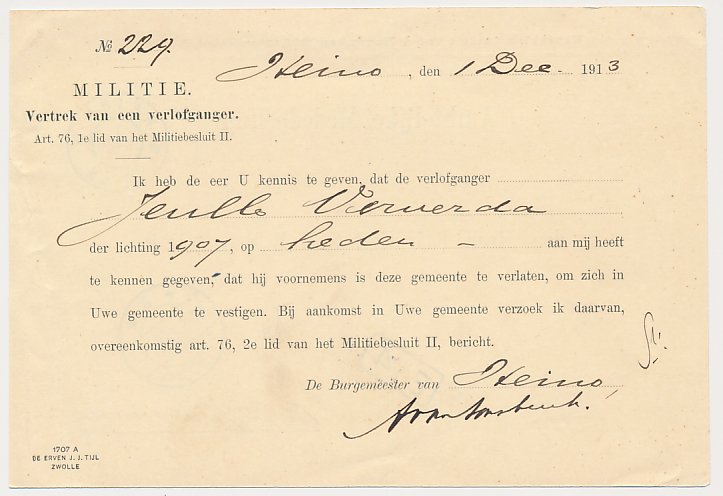 № 229.
Heino, den 1 Dec. 1913
MILITIE.
Vertrek van een verlofganger.
Art. 76, 1e lid van het Militiebesluit II.
Ik heb de eer U kennis te geven, dat de verlofganger
Jenlle Ververda
der lichting 1907, op heden - aan mij heeft
te kennen gegeven, dat hij voornemens is deze gemeente te verlaten, om zich in
Uwe gemeente te vestigen. Bij aankomst in Uwe gemeente verzoek ik daarvan,
overeenkomstig art. 76, 2e lid van het Militiebesluit II, bericht.
De Burgemeester van Heino,
1707 A
DE ERVEN J. J. TIJL
ZWOLLE